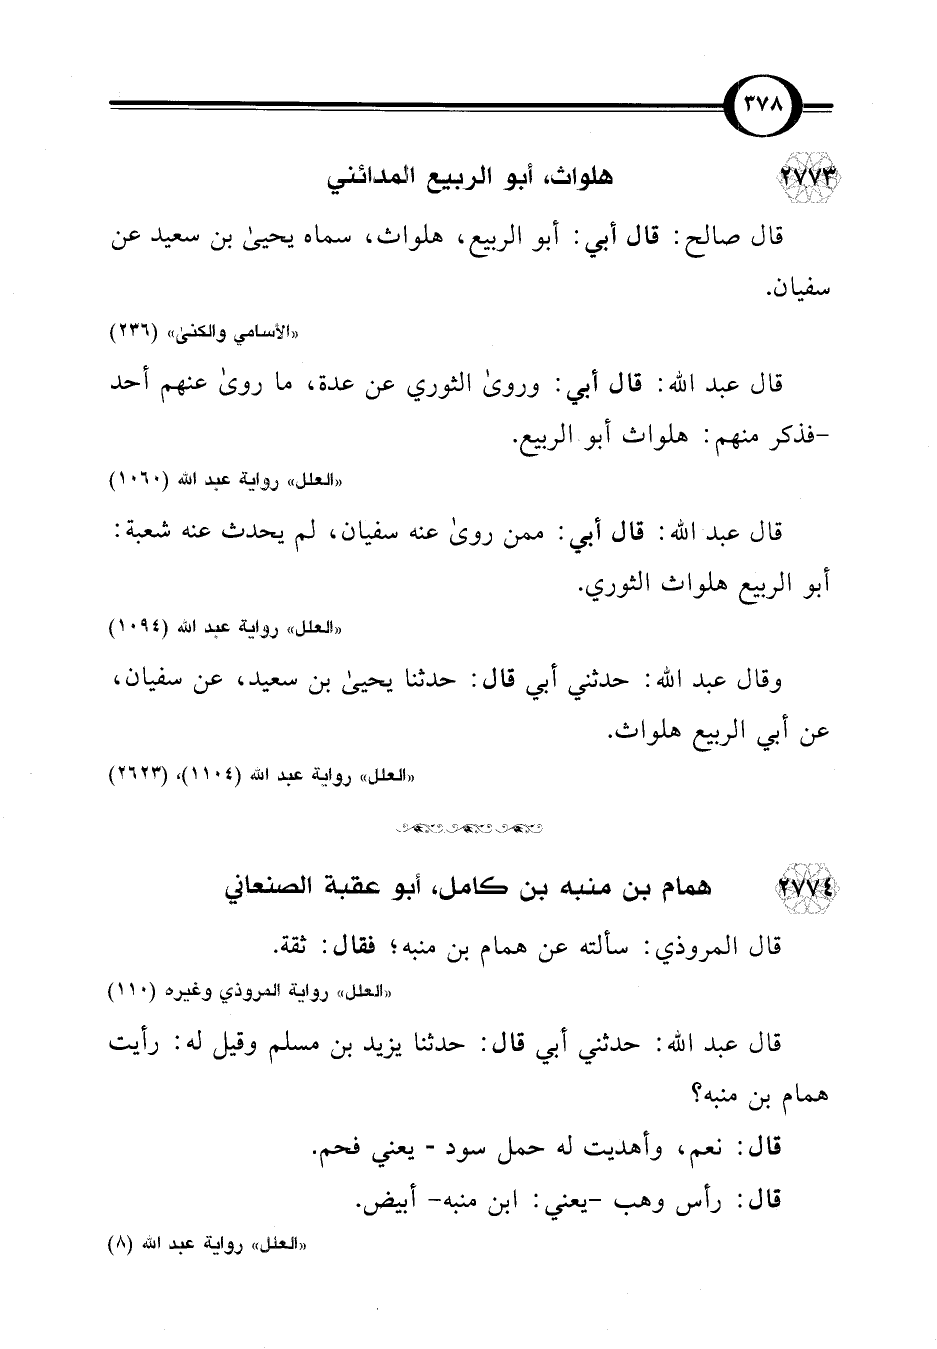 ٣٧٨
٢٧٧٣ هلواث، أبو الربيع المدائني
قال صالح: قال أبي: أبو الربيع، هلواث، سماه يحيىٰ بن سعيد عن
سفيان.
«الأسامي والكنىٰ» (٢٣٦)
قال عبد الله: قال أبي: وروىٰ الثوري عن عدة، ما روىٰ عنهم أحد
-فذكر منهم: هلواث أبو الربيع.
«العلل» رواية عبد الله (١٠٦٠)
قال عبد الله: قال أبي: ممن روىٰ عنه سفيان، لم يحدث عنه شعبة:
أبو الربيع هلواث الثوري.
«العلل» رواية عبد الله (١٠٩٤)
وقال عبد الله: حدثني أبي قال: حدثنا يحيىٰ بن سعيد، عن سفيان،
عن أبي الربيع هلواث.
«العلل» رواية عبد الله (١١٠٤)، (٢٦٢٣)
٢٧٧٤ همام بن منبه بن كامل، أبو عقبة الصنعاني
قال المروذي: سألته عن همام بن منبه؛ فقال: ثقة.
«العلل» رواية المروذي وغيره (١١٠)
قال عبد الله: حدثني أبي قال: حدثنا يزيد بن مسلم وقيل له: رأيت
همام بن منبه؟
قال: نعم، وأهديت له حمل سود - يعني فحم.
قال: رأس وهب -يعني: ابن منبه- أبيض.
«العلل» رواية عبد الله (٨)